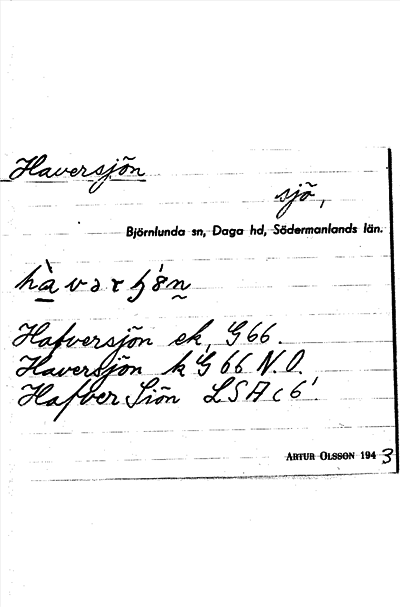 Haversjön
sjö,
Björnlunda sn, Daga hd, Södermanlands län.
Hafversjön ek, G66.
Haversjön k G 66 N.O.
Hafver Siön LSA c 6¹.
ARTUR OLSSON 1943